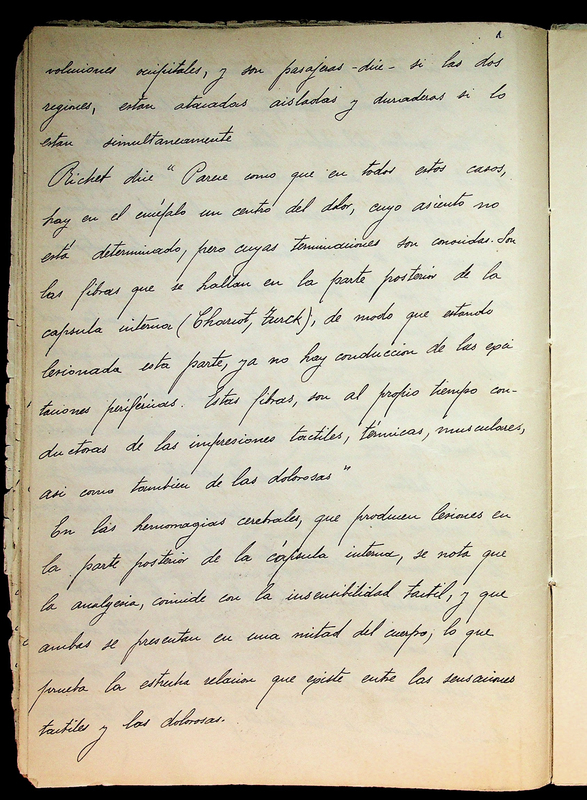 voluciones occipitales, y son pasajeras -dice- si las dos
regiones, están atacadas aisladas y duraderas si lo
están simultaneamente
Richet dice "Parece como que en todos estos casos,
hay en el encéfalo un centro del dolor, cuyo asiento no
está determinado, pero cuyas terminaciones son conocidas. Son
las fibras que se hallan en la parte posterior de la
capsula interna (Charcot, Turck), de modo que estando
lesionada esta parte, ya no hay conduccion de las exci
taciones periféricas. Estas fibras, son al propio tiempo con-
ductoras de las impresiones tactiles, térmicas, musculares,
asi como tambien de las dolorosas"
En las hemorragias cerebrales, que producen lesiones en
la parte posterior de la cápsula interna, se nota que
la analgesia, coincide con la insensibilidad tactil, y que
ambas se presentan en una mitad del cuerpo; lo que
prueba la estrecha relacion que existe entre las sensaciones
tactiles y las dolorosas.